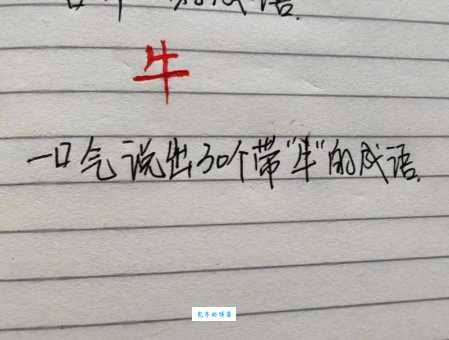 的成语.
牛
一口气说出30个带"牛"的成语.